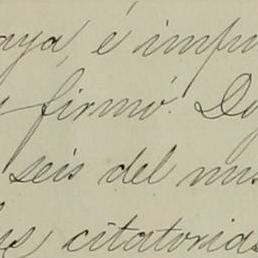 aya, é impu
y firmó. Do
seis del mis
citatorias